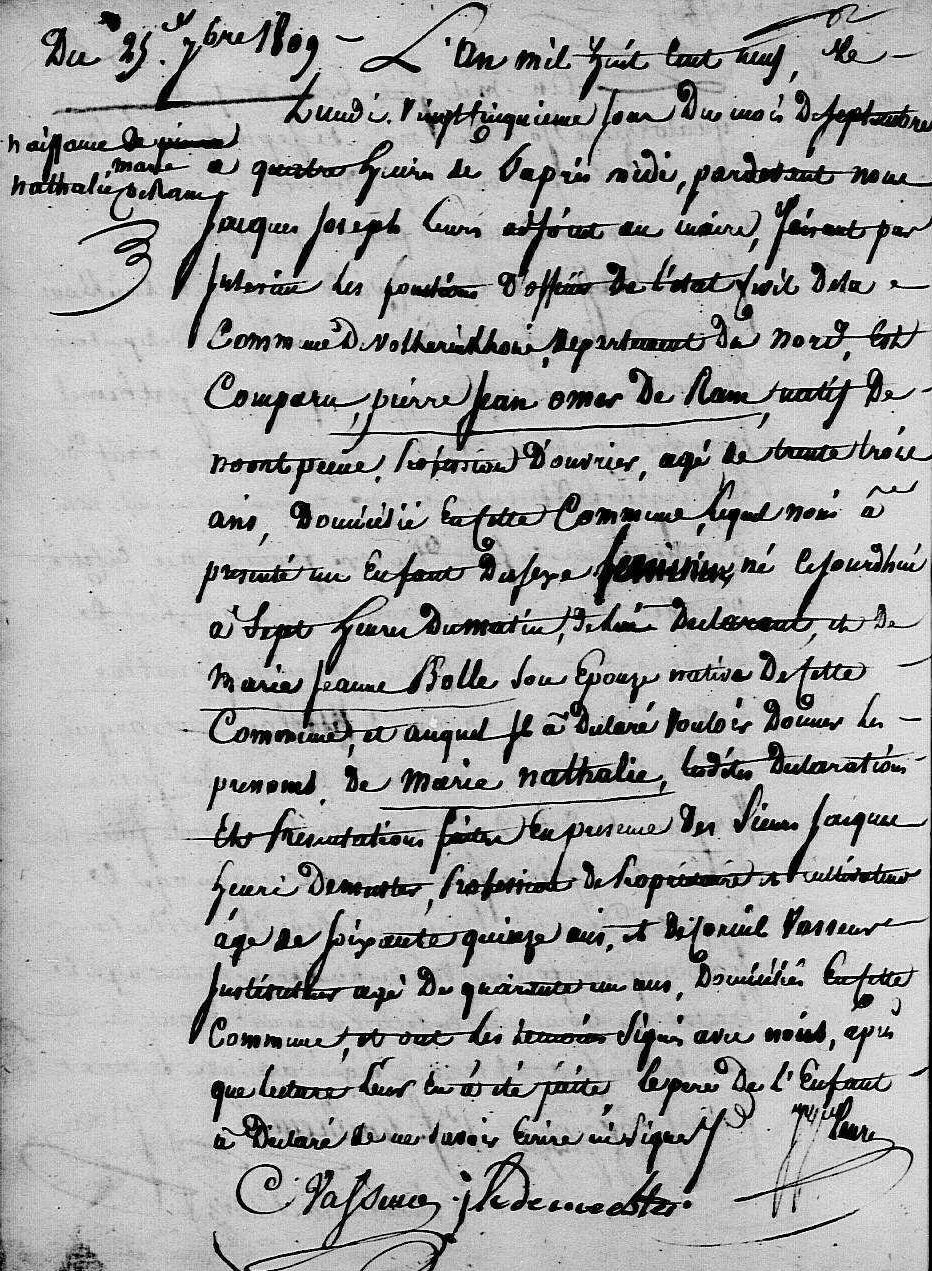 Du 25. 7bre 1809 -
Naissance de
marie
nathalie DeRam
L'An mil huit cent neuf, Le -
Lundi. Vingtcinquieme jour Du mois De Septembre
a quatre heures de l'aprés midi, pardevant nous
Jacques Joseph Leurs adjoint au maire, faisant par
Interim les fonctions D'officier de l'état Civil de la -
Commune De Volkerinkhove, Departement Du Nord, Est
Comparu, pierre Jean omer De Ram, natif De -
noortpeene, Profession D'ouvrier, agé de trente trois
ans, Domicilié En cette Commune, lequel nous à
presenté un Enfant Du sexe feminin, né Cejourdhui
à Sept heures Du matin, de lui Declarant, et De
Marie Jeanne Bolle son Epouze native De cette
Commune, et auquel Il à Declaré Vouloir Donner les -
prenoms, de Marie nathalie, lesdites Declarations
Et Presentations faites En presence Des Sieurs Jacques
henri Demester, Profession de Proprietaire et cultivateur
âge de soixante quinze ans, et de Vasseur
Instituteur agé De quarante un ans, Domiciliés En cette
Commune, et ont les temoins Signé avec nous, aprés
que lecture leur En à été faite, le pere De l'Enfant -
à Declaré de ne savoir Ecrire ni Signer
Leurs
C Vasseur jh demeester